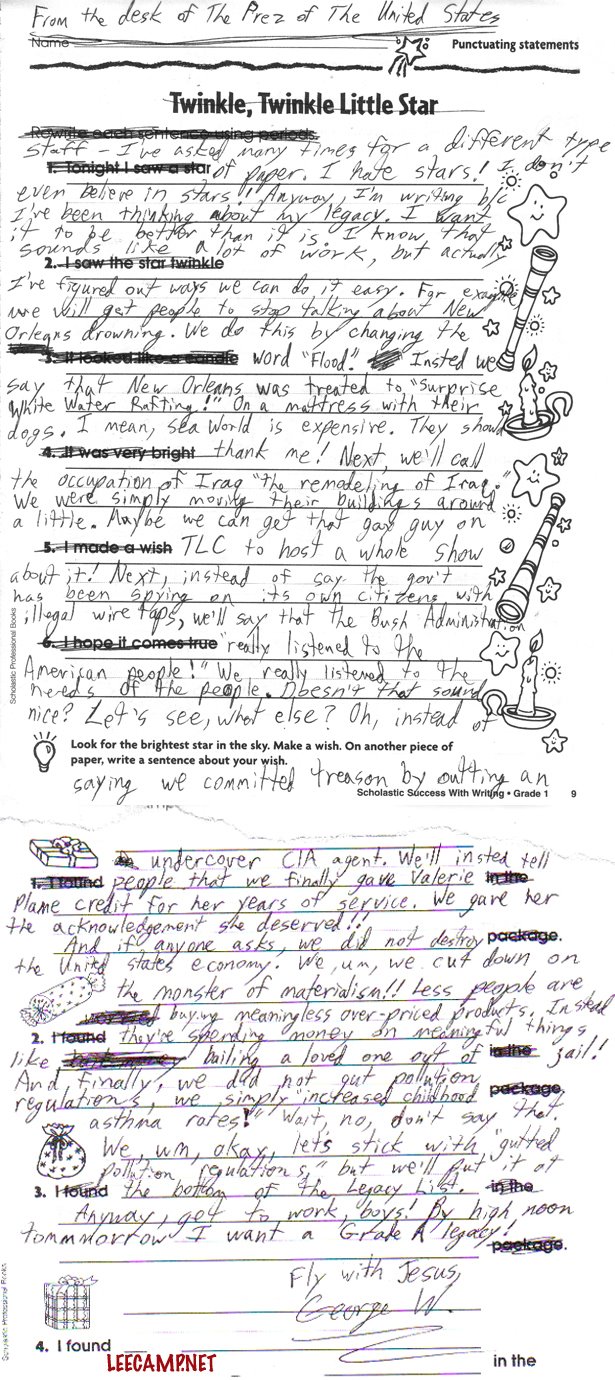 From the desk of The Prez of The United States
Name
Punctuating statements
Twinkle, Twinkle Little Star
Rewrite each sentence using periods.
Staff – I've asked many times for a different type
1. Tonight I saw a star of paper. I hate stars! I don't
even believe in stars! Anyway, I'm writing b/c
I've been thinking about my legacy. I want
it to be better than it is. I know that
sounds like a lot of work, but actually
2. I saw the star twinkle
I've figured out ways we can do it easy. For example
we will get people to stop talking about New
Orleans drowning. We do this by changing the
3. It looked like a candle word "Flood." Insted we
say that New Orleans was treated to "Surprise
White Water Rafting!" On a mattress with their
dogs. I mean, sea World is expensive. They should
4. It was very bright thank me! Next, we'll call
the occupation of Iraq "the remodeling of Iraq."
We were simply moving their buildings around
a little. Maybe we can get that gay guy on
5. I made a wish TLC to host a whole show
about it! Next, instead of say the gov't
has been spying on its own citizens with
illegal wire taps, we'll say that the Bush Administration
6. I hope it comes true "really listened to the
American people!" We really listened to the
needs of the people. Doesn't that sound
nice? Let's see, what else? Oh, instead of
Look for the brightest star in the sky. Make a wish. On another piece of
paper, write a sentence about your wish.
saying we committed treason by outting an
Scholastic Professional Books
Scholastic Success With Writing • Grade 1 9
undercover CIA agent. We'll insted tell
1. I found people that we finally gave Valerie in the
Plame credit for her years of service. We gave her
the acknowledgement she deserved!!
And if anyone asks, we did not destroy package.
the United states economy. We, um, we cut down on
the monster of materialism!! Less people are
buying meaningless over-priced products. Instead
2. I found they're spending money on meaningful things
like bailing a loved one out of in the jail!
And finally, we did not gut pollution
regulations, we simply "increased childhood package.
asthma rates!" Wait, no, don't say that.
We, um, okay, lets stick with "gutted
pollution regulations," but we'll put it at
3. I found the bottom of the Legacy List. in the
Anyway, get to work, boys! By high noon
tommmorrow I want a Grade A legacy!
package.
Fly with Jesus,
George W.
4. I found
in the
LEECAMPNET
Scholastic Professional Books